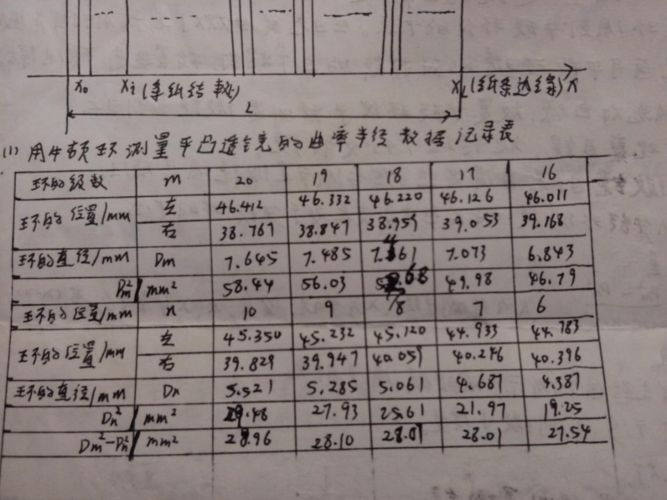 x₀ xᵢ(条纸结软) x_L(纸条边缘) x
L
(1) 用牛顿环测量平凸透镜的曲率半径数据记录表
环的级数 m 20 19 18 17 16
环的位置/mm 左 46.412 46.332 46.220 46.126 46.011
右 38.767 38.847 38.959 39.053 39.168
环的直径/mm Dm 7.645 7.485 7.073 6.843
Dm² mm² 58.44 56.03 49.98 46.79
n 10 9 8 7 6
环的位置/mm 左 45.350 45.232 45.120 44.933 44.783
右 39.829 39.947 40.059 40.246 40.396
环的直径/mm Dn 5.521 5.285 5.061 4.687 4.387
Dn² mm² 27.93 25.61 21.97 19.25
Dm²-Dn² mm² 28.96 28.10 28.07 28.01 27.54